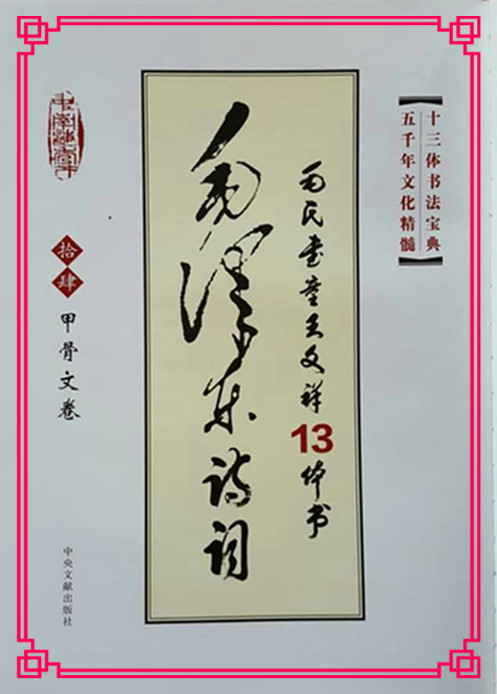 十三体书法宝典
五千年文化精髓
民书童王文祥13体书
毛泽东诗词
拾肆 甲骨文卷
中央文献出版社